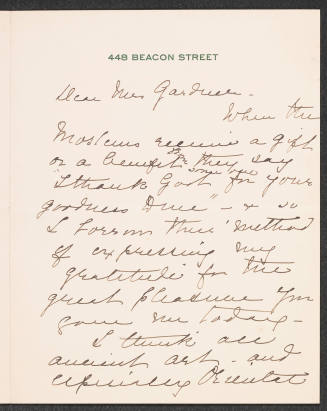 448 BEACON STREET
Dear Mrs Gardner.
When the
Moslems receive a gift
or a benefit they say
some one
"I thank God for your
goodness Dune" - & so
I borrow their method
of expressing my
gratitude for the
great pleasure you
gave me today -
I think all
ancient art - and
especially Oriental